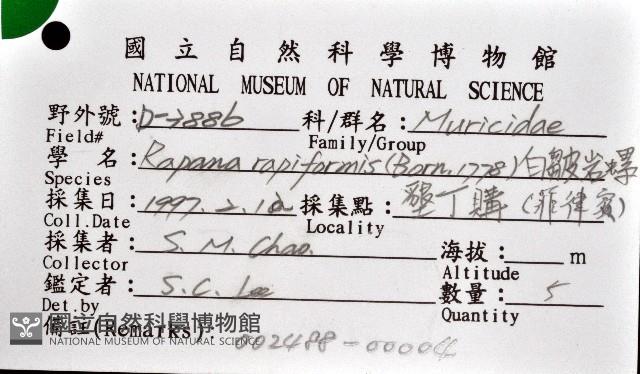 國立自然科學博物館
NATIONAL MUSEUM OF NATURAL SCIENCE
野外號: 科/群名: Muricidae
Field# Family/Group
學 名: Rapana rapiformis (Born, 1778) 白皺岩螺
Species
採集日: 1997. 2. 採集點: 墾丁購 (菲律賓)
Coll.Date Locality
採集者: S. M. Chao. 海拔: m
Collector Altitude
鑑定者: S. C. Lee 數量: 5
Det.by Quantity
備註(Remarks): 002488-00004
國立自然科學博物館
NATIONAL MUSEUM OF NATURAL SCIENCE